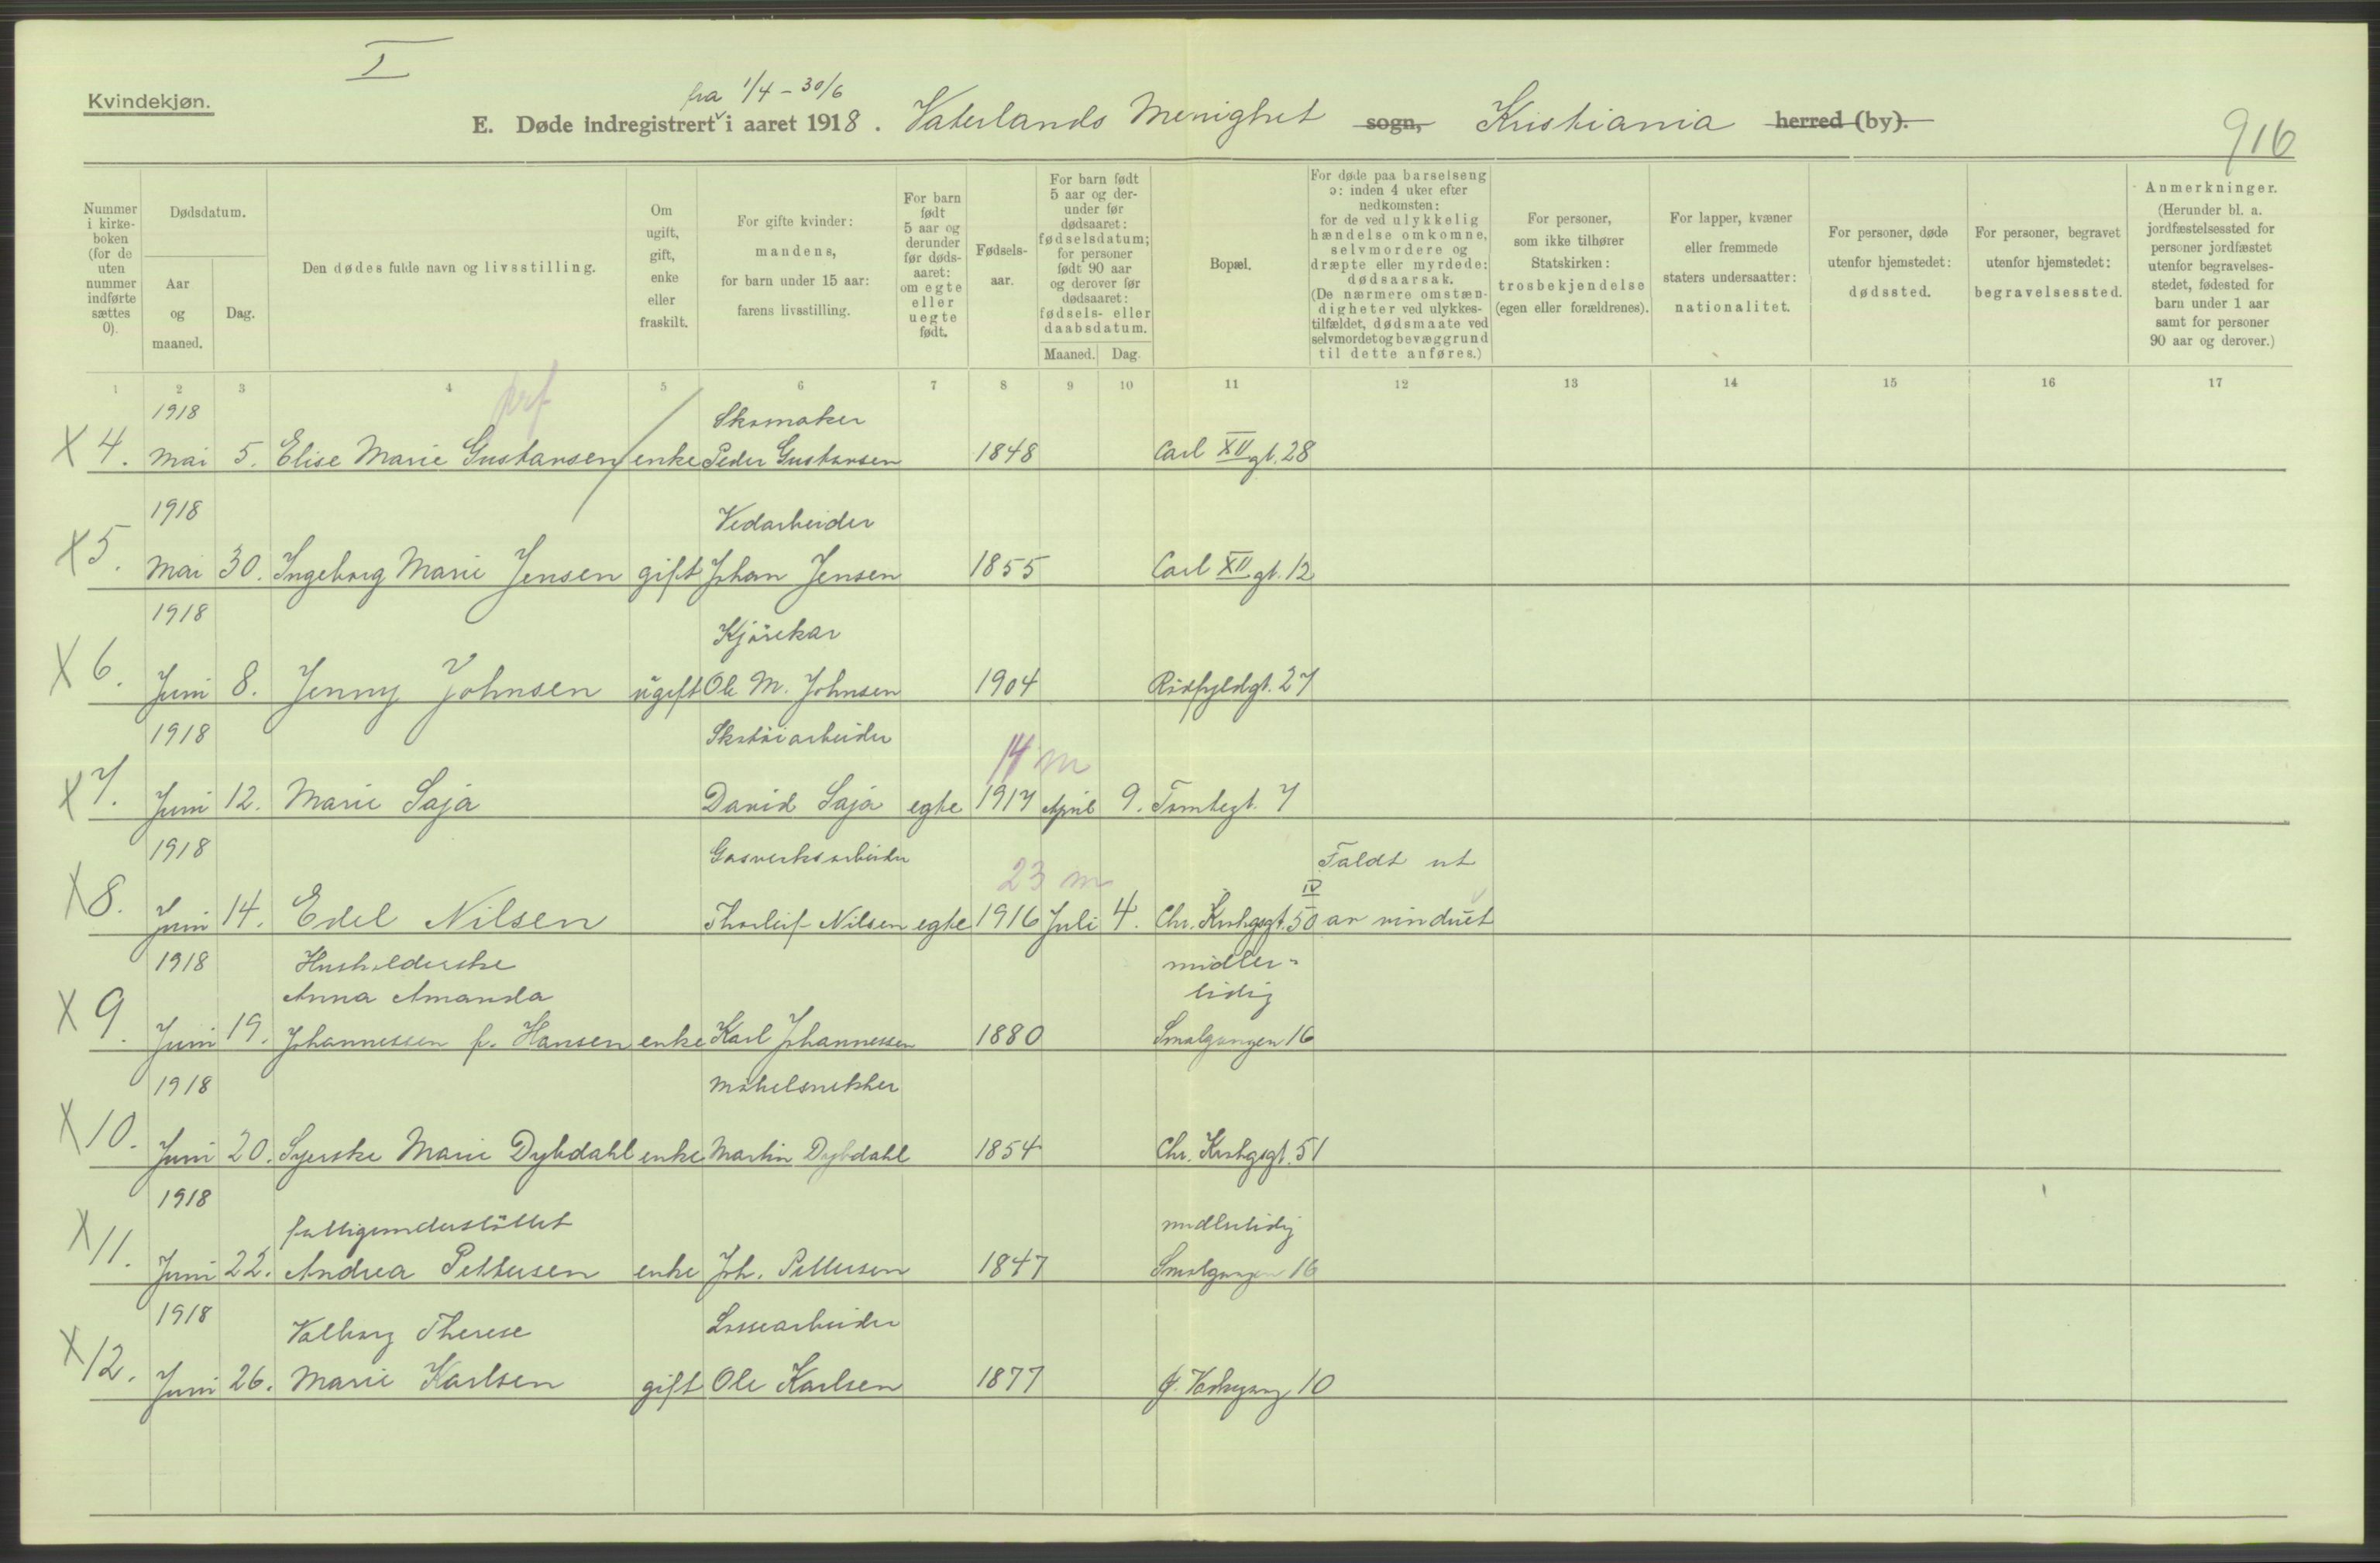 I
Kvindekjøn.
fra 1/4 – 30/6
E. Døde indregistrert i aaret 1918. Vaterlands Menighet sogn, Kristiania herred (by).
916
Nummer i kirke-boken (for de uten nummer indførte sættes 0).
Dødsdatum.
Aar og maaned.
Dag.
Den dødes fulde navn og livsstilling.
Om ugift, gift, enke eller fraskilt.
For gifte kvinder: mandens, for barn under 15 aar: farens livsstilling.
For barn født 5 aar og derunder før døds-aaret: om egte eller uegte født.
Fødsels-aar.
For barn født 5 aar og der-under før dødsaaret: fødselsdatum; for personer født 90 aar og derover før dødsaaret: fødsels- eller daabsdatum.
Maaned.
Dag.
Bopæl.
For døde paa barselseng ɔ: inden 4 uker efter nedkomsten: for de ved ulykkelig hændelse omkomne, selvmordere og dræpte eller myrdede: dødsaarsak. (De nærmere omstæn-digheter ved ulykkes-tilfældet, dødsmaate ved selvmordet og bevæggrund til dette anføres.)
For personer, som ikke tilhører Statskirken: trosbekjendelse (egen eller forældrenes).
For lapper, kvæner eller fremmede staters undersaatter: nationalitet.
For personer, døde utenfor hjemstedet: dødssted.
For personer, begravet utenfor hjemstedet: begravelsessted.
Anmerkninger. (Herunder bl. a. jordfæstelsessted for personer jordfæstet utenfor begravelses-stedet, fødested for barn under 1 aar samt for personer 90 aar og derover.)
1 2 3 4 5 6 7 8 9 10 11 12 13 14 15 16 17
1918 Skomaker
X 4. Mai 5. Elise Marie Gustavsen enke Peder Gustavsen 1848 Carl XII gt. 28
1918 Vedarbeider
X 5. Mai 30. Ingeborg Marie Jensen gift Johan Jensen 1855 Carl XII gt. 12
1918 Kjørekar
X 6. Juni 8. Jenny Johnsen ugift Ole M. Johnsen 1904 Rødfyldgt. 27
1918 Skotøiarbeider
14 m
X 7. Juni 12. Marie Saja David Saja egte 1917 April 9. Tomtegt. 7
1918 Gasverksarbeider 23 m Faldt ut
X 8. Juni 14. Edel Nilsen Thorleif Nilsen egte 1916 Juli 4. Chr. Krohgsgt. 50 IV av vinduet
1918 Husholderske midler-
Anna Amanda tidig
X 9. Juni 19. Johannessen f. Hansen enke Karl Johannessen 1880 Smalgangen 16
1918 Møbelsnekker
X 10. Juni 20. Syerske Marie Dybdahl enke Martin Dybdahl 1854 Chr. Krohgsgt. 51
1918
fattigunderstøttet midlertidig
X 11. Juni 22. Andrea Pettersen enke Joh. Pettersen 1847 Smalgangen 16
1918 Valborg Therese Lossearbeider
X 12. Juni 26. Marie Karlsen gift Ole Karlsen 1877 10